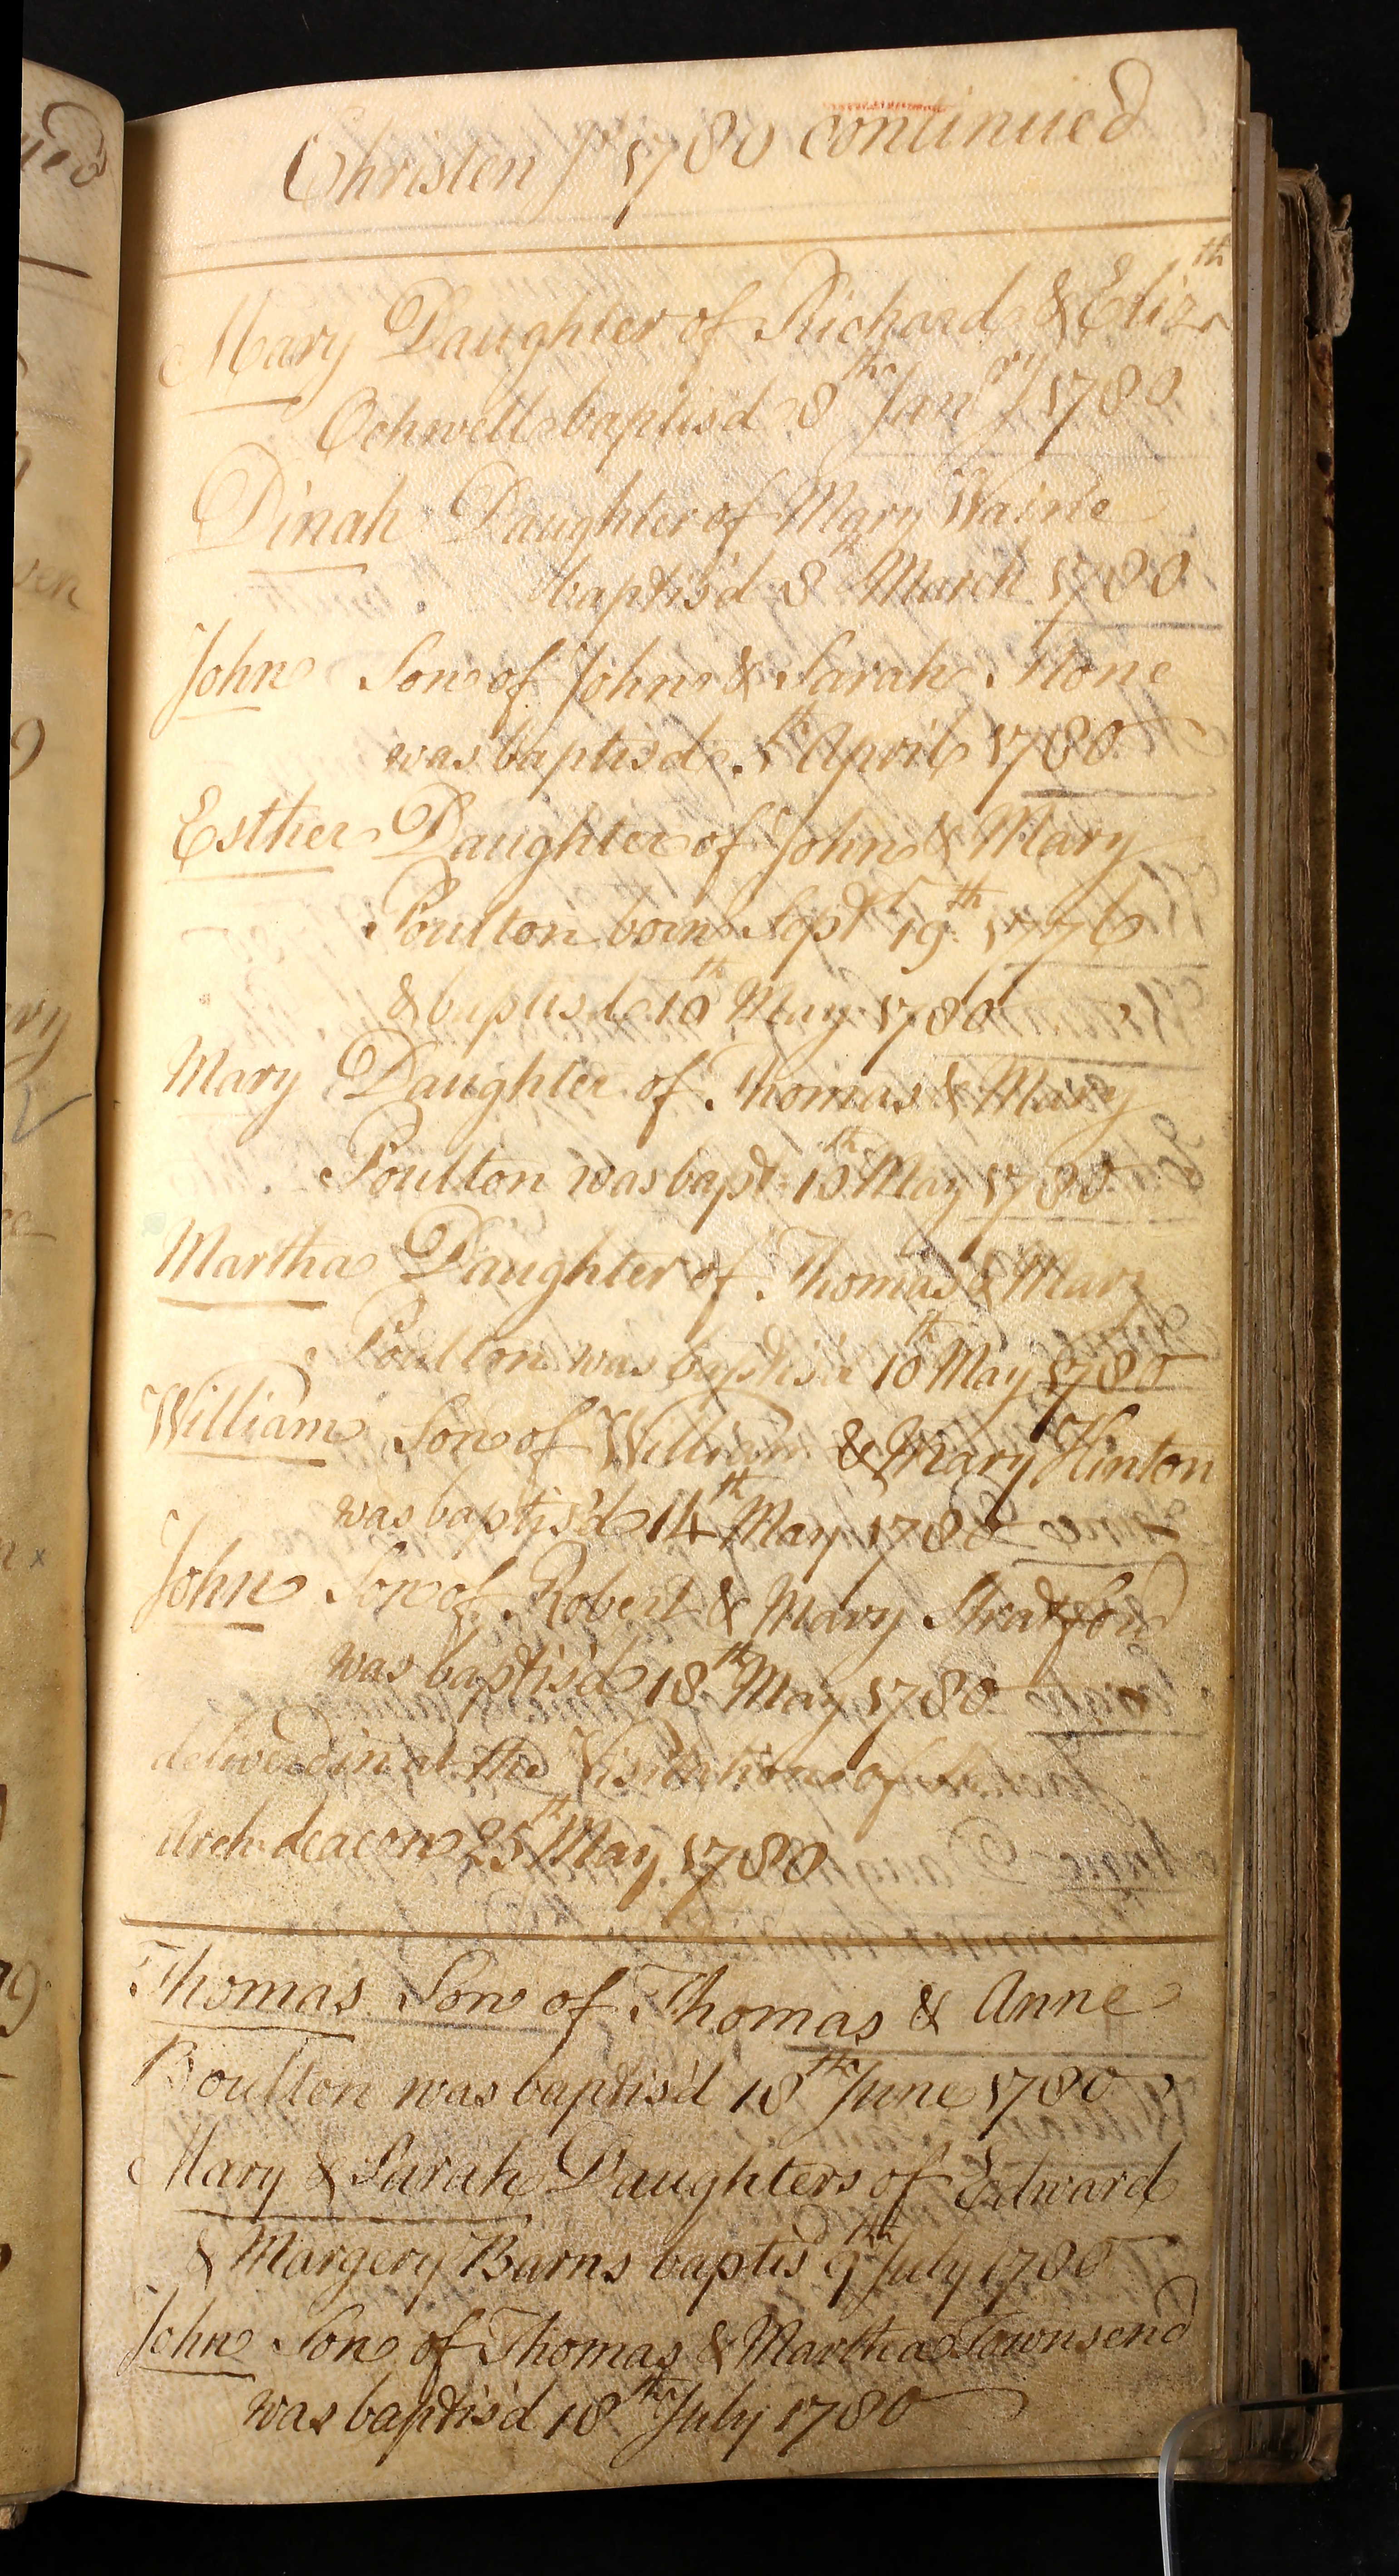 Christen^gs 1780 continued
Mary Daughter of Richard & Eliz^th
Ockwell baptis'd 8^th Jan^ry 1780
Dinah Daughter of Mary Waine
baptis'd 8^th March 1780
John Son of John & Sarah Stone
was baptis'd 5^th April 1780
Esther Daughter of John & Mary
Poulton born Sept^r 19^th 1776
& baptis'd 10^th May 1780
Mary Daughter of Thomas & Mary
Poulton was bapt 10^th May 1780
Martha Daughter of Thomas & Mary
Poulton was baptis'd 10^th May 1780
William Son of William & Mary Hinton
was baptis'd 14^th May 1780
John Son of Robert & Mary Stratford
was baptis'd 18^th May 1780
deliverd in at the Visitation of
Arch-deacon 25^th May 1780
Thomas Son of Thomas & Anne
Boulton was baptis'd 18^th June 1780
Mary & Sarah Daughters of Edward
& Margery Barns baptis'd 9^th July 1780
John Son of Thomas & Martha Townsend
was baptis'd 18^th July 1780